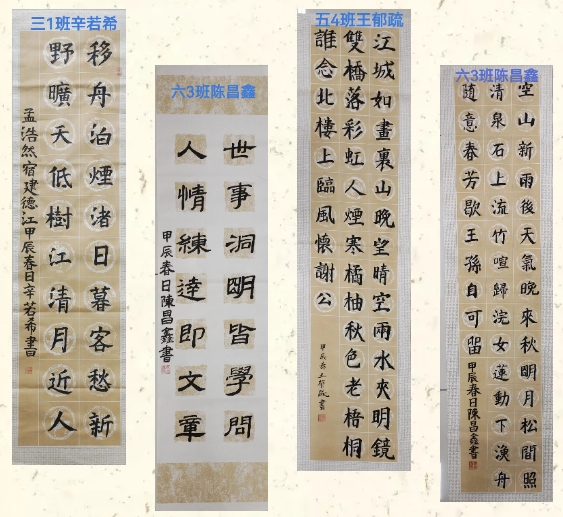 三1班辛若希
移舟泊煙渚日暮客愁新
野曠天低樹江清月近人
孟浩然宿建德江甲辰春日辛若希書
六3班陈昌鑫
世事洞明皆學問
人情練達即文章
甲辰春日陳昌鑫書
五4班王郁疏
江城如畫裏山晚望晴空兩水夾明鏡
雙橋落彩虹人煙寒橘柚秋色老梧桐
誰念北樓上臨風懷謝公
甲辰春王郁疏書
六3班陈昌鑫
空山新雨後天氣晚來秋明月松間照
清泉石上流竹喧歸浣女蓮動下漁舟
随意春芳歇王孫自可留
甲辰春日陳昌鑫書